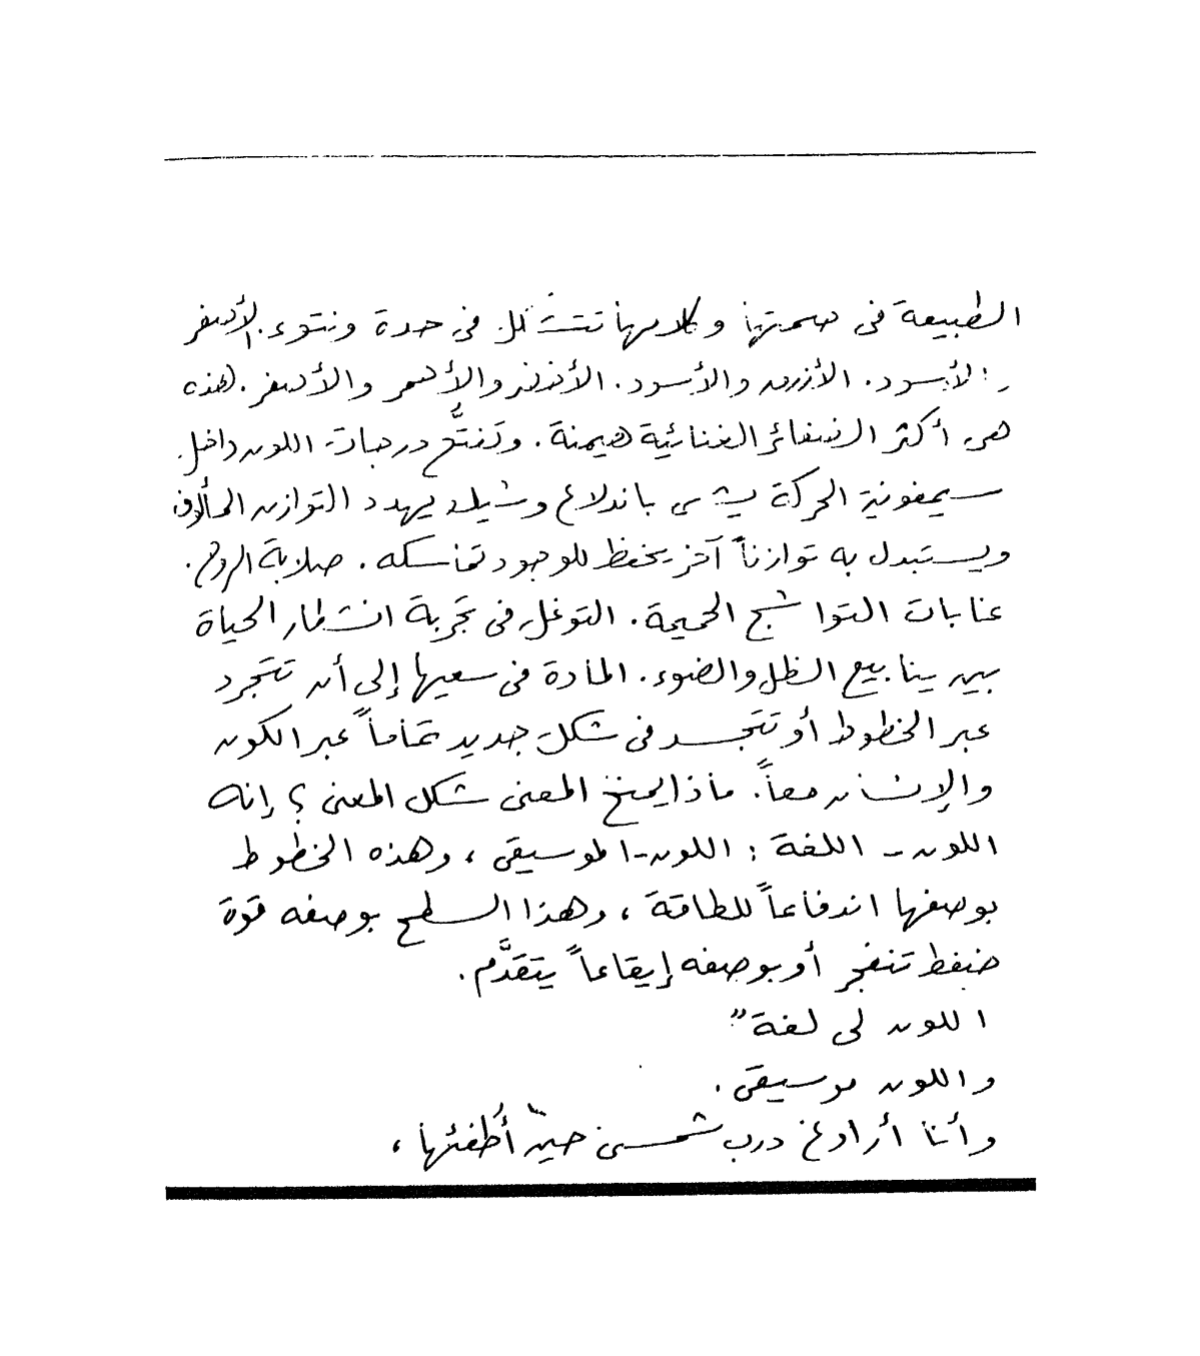 الطبيعة فى صمتها وكلامها تتشكل فى حدة ونتوء. الأصفر
والأسود. الأزرق والأسود. الأخضر والأحمر والأصفر. هذه
هى أكثر الضفائر الغنائية هيمنة. وتفتُّح درجات اللون داخل
سيمفونية الحركة يشى باندلاع وشيك يهدد التوازن المألوف
ويستبدل به توازناً آخر يحفظ للوجود تماسكه. صلابة الروح.
غابات التواشج الحميمة. التوغل فى تجربة انشطار الحياة
بين ينابيع الظل والضوء. المادة فى سعيها إلى أن تتجرد
عبر الخطوط أو تتجسد فى شكل جديد تماماً عبر الكون
والإنسان معاً. ماذا يمنح المعنى شكل المعنى؟ إنه
اللون - اللغة : اللون - الموسيقى، وهذه الخطوط
بوصفها اندفاعاً للطاقة، وهذا السطح بوصفه قوة
ضغط تنفجر أو بوصفه إيقاعاً يتقدَّم.
اللون لى لغةٌ
واللون موسيقى.
وأنا أراوغ درب شمسى حين أُطفئها،